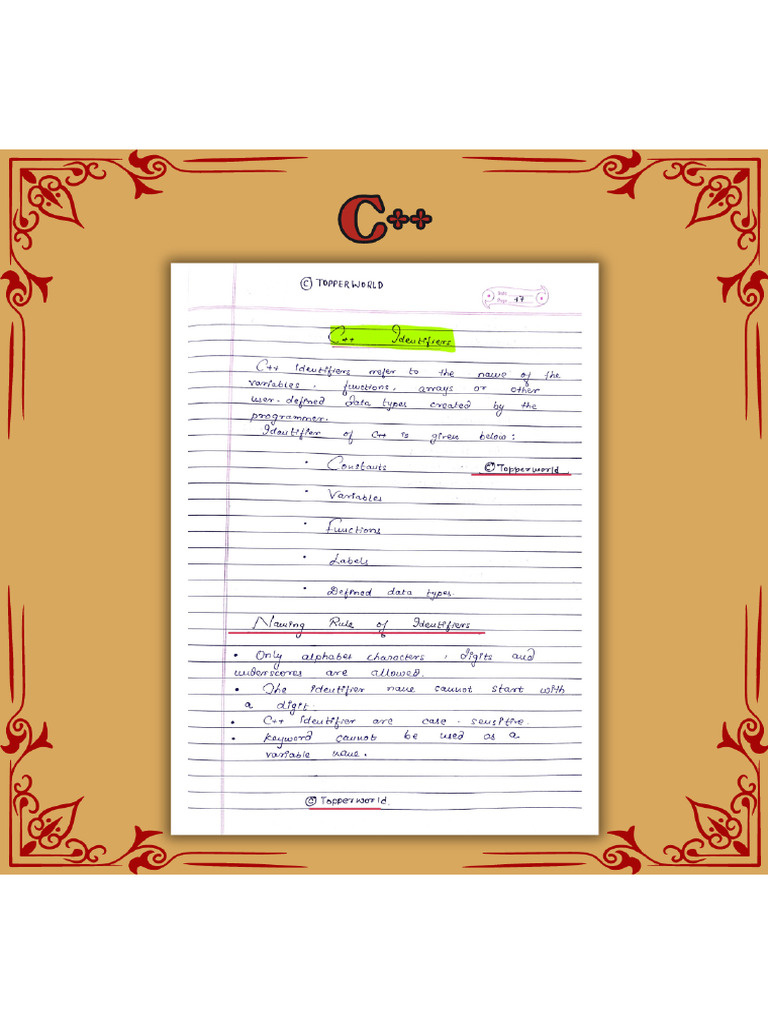 C++
© TOPPERWORLD
Date
Page 17
C++ Identifiers
C++ identifiers refer to the name of the
variables, functions, arrays or other
user-defined data types created by the
programmer.
Identifier of C++ is given below:
• Constants
© Topperworld
• Variables
• Functions
• Labels
• Defined data types.
Naming Rule of Identifiers
• Only alphabet characters, digits and
underscores are allowed.
• The identifier name cannot start with
a digit.
• C++ identifier are case-sensitive.
• Keyword cannot be used as a
variable name.
© Topperworld.